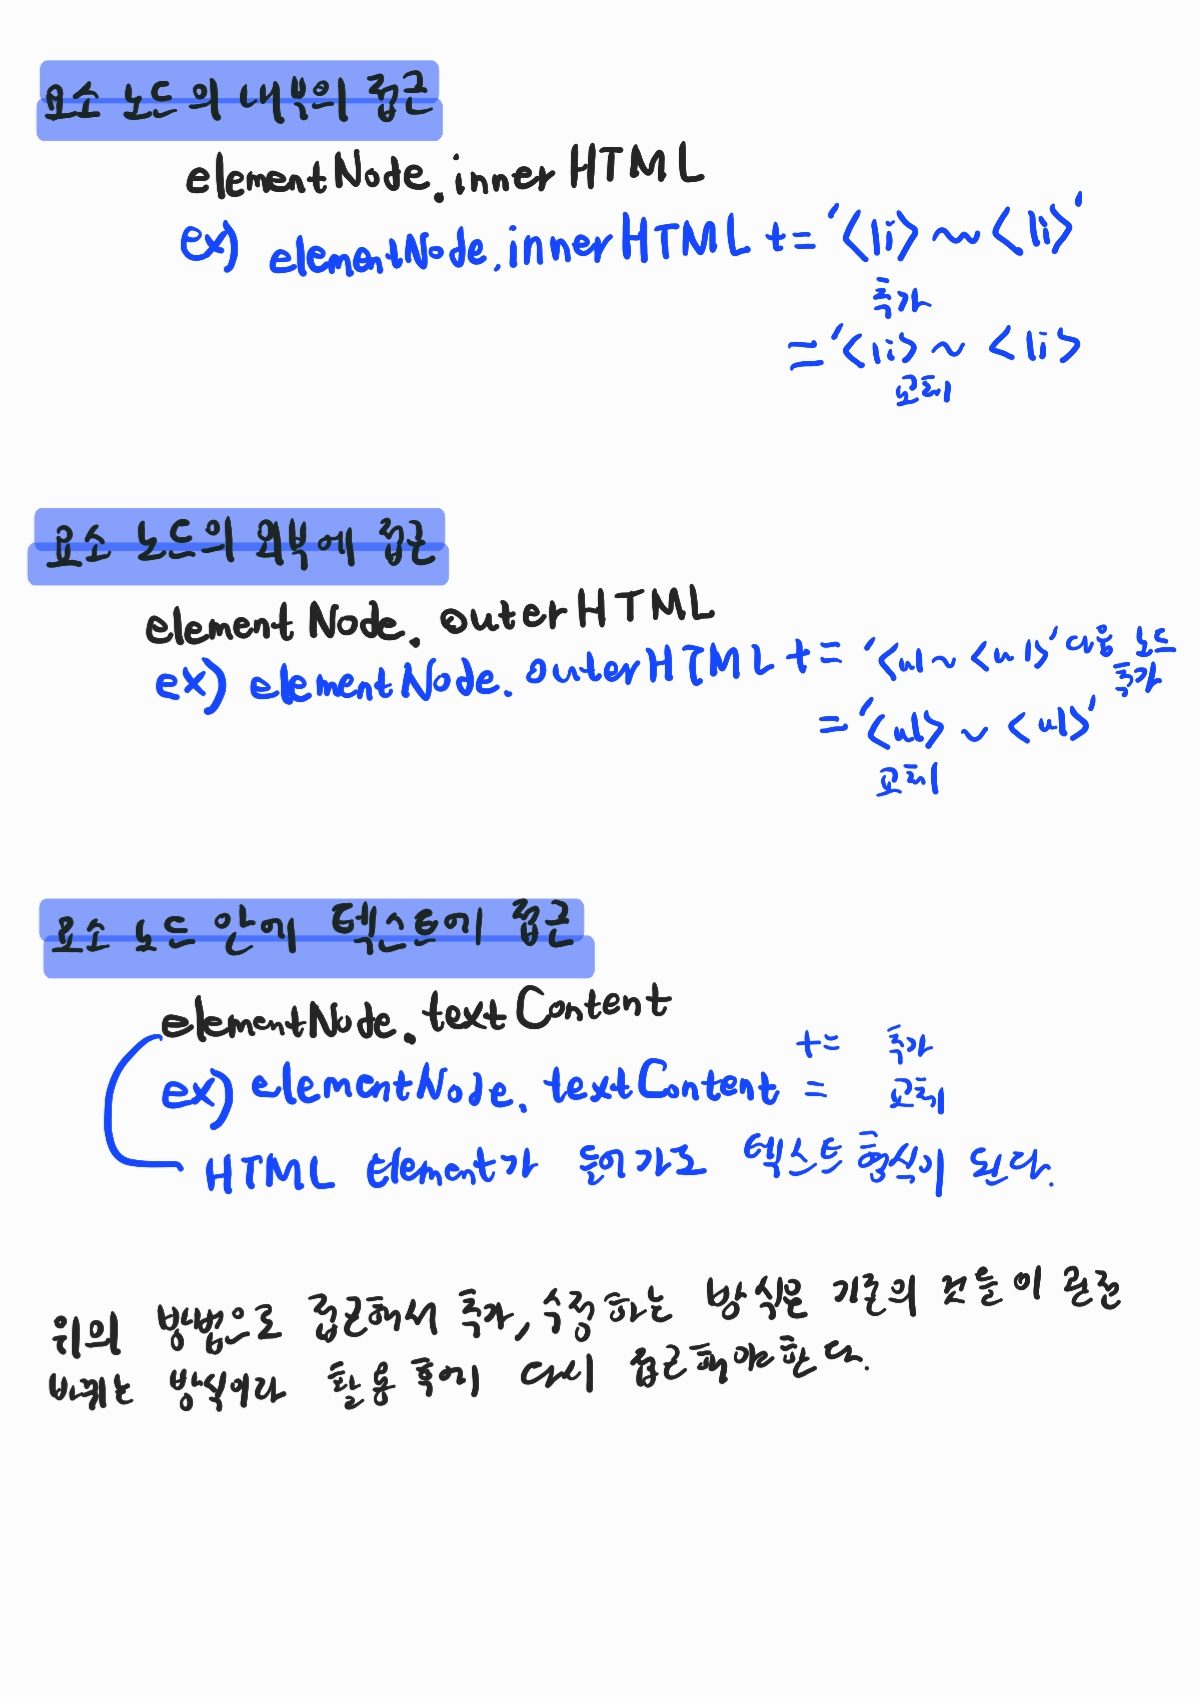 요소 노드의 내부의 접근
elementNode.innerHTML
ex) elementNode.innerHTML += '<li> ~ <li>'
추가
= '<li> ~ <li>
교체
요소 노드의 외부에 접근
elementNode.outerHTML
ex) elementNode.outerHTML += '<ul ~ <ul>' 다음 노드
추가
= '<ul> ~ <ul>'
교체
요소 노드 안에 텍스트에 접근
elementNode.textContent
+= 추가
ex) elementNode.textContent = 교체
HTML Element가 들어가도 텍스트 형식이 된다.
위의 방법으로 접근해서 추가, 수정하는 방식은 기존의 것들이 완전
바뀌는 방식이라 활용 후에 다시 접근해야 한다.